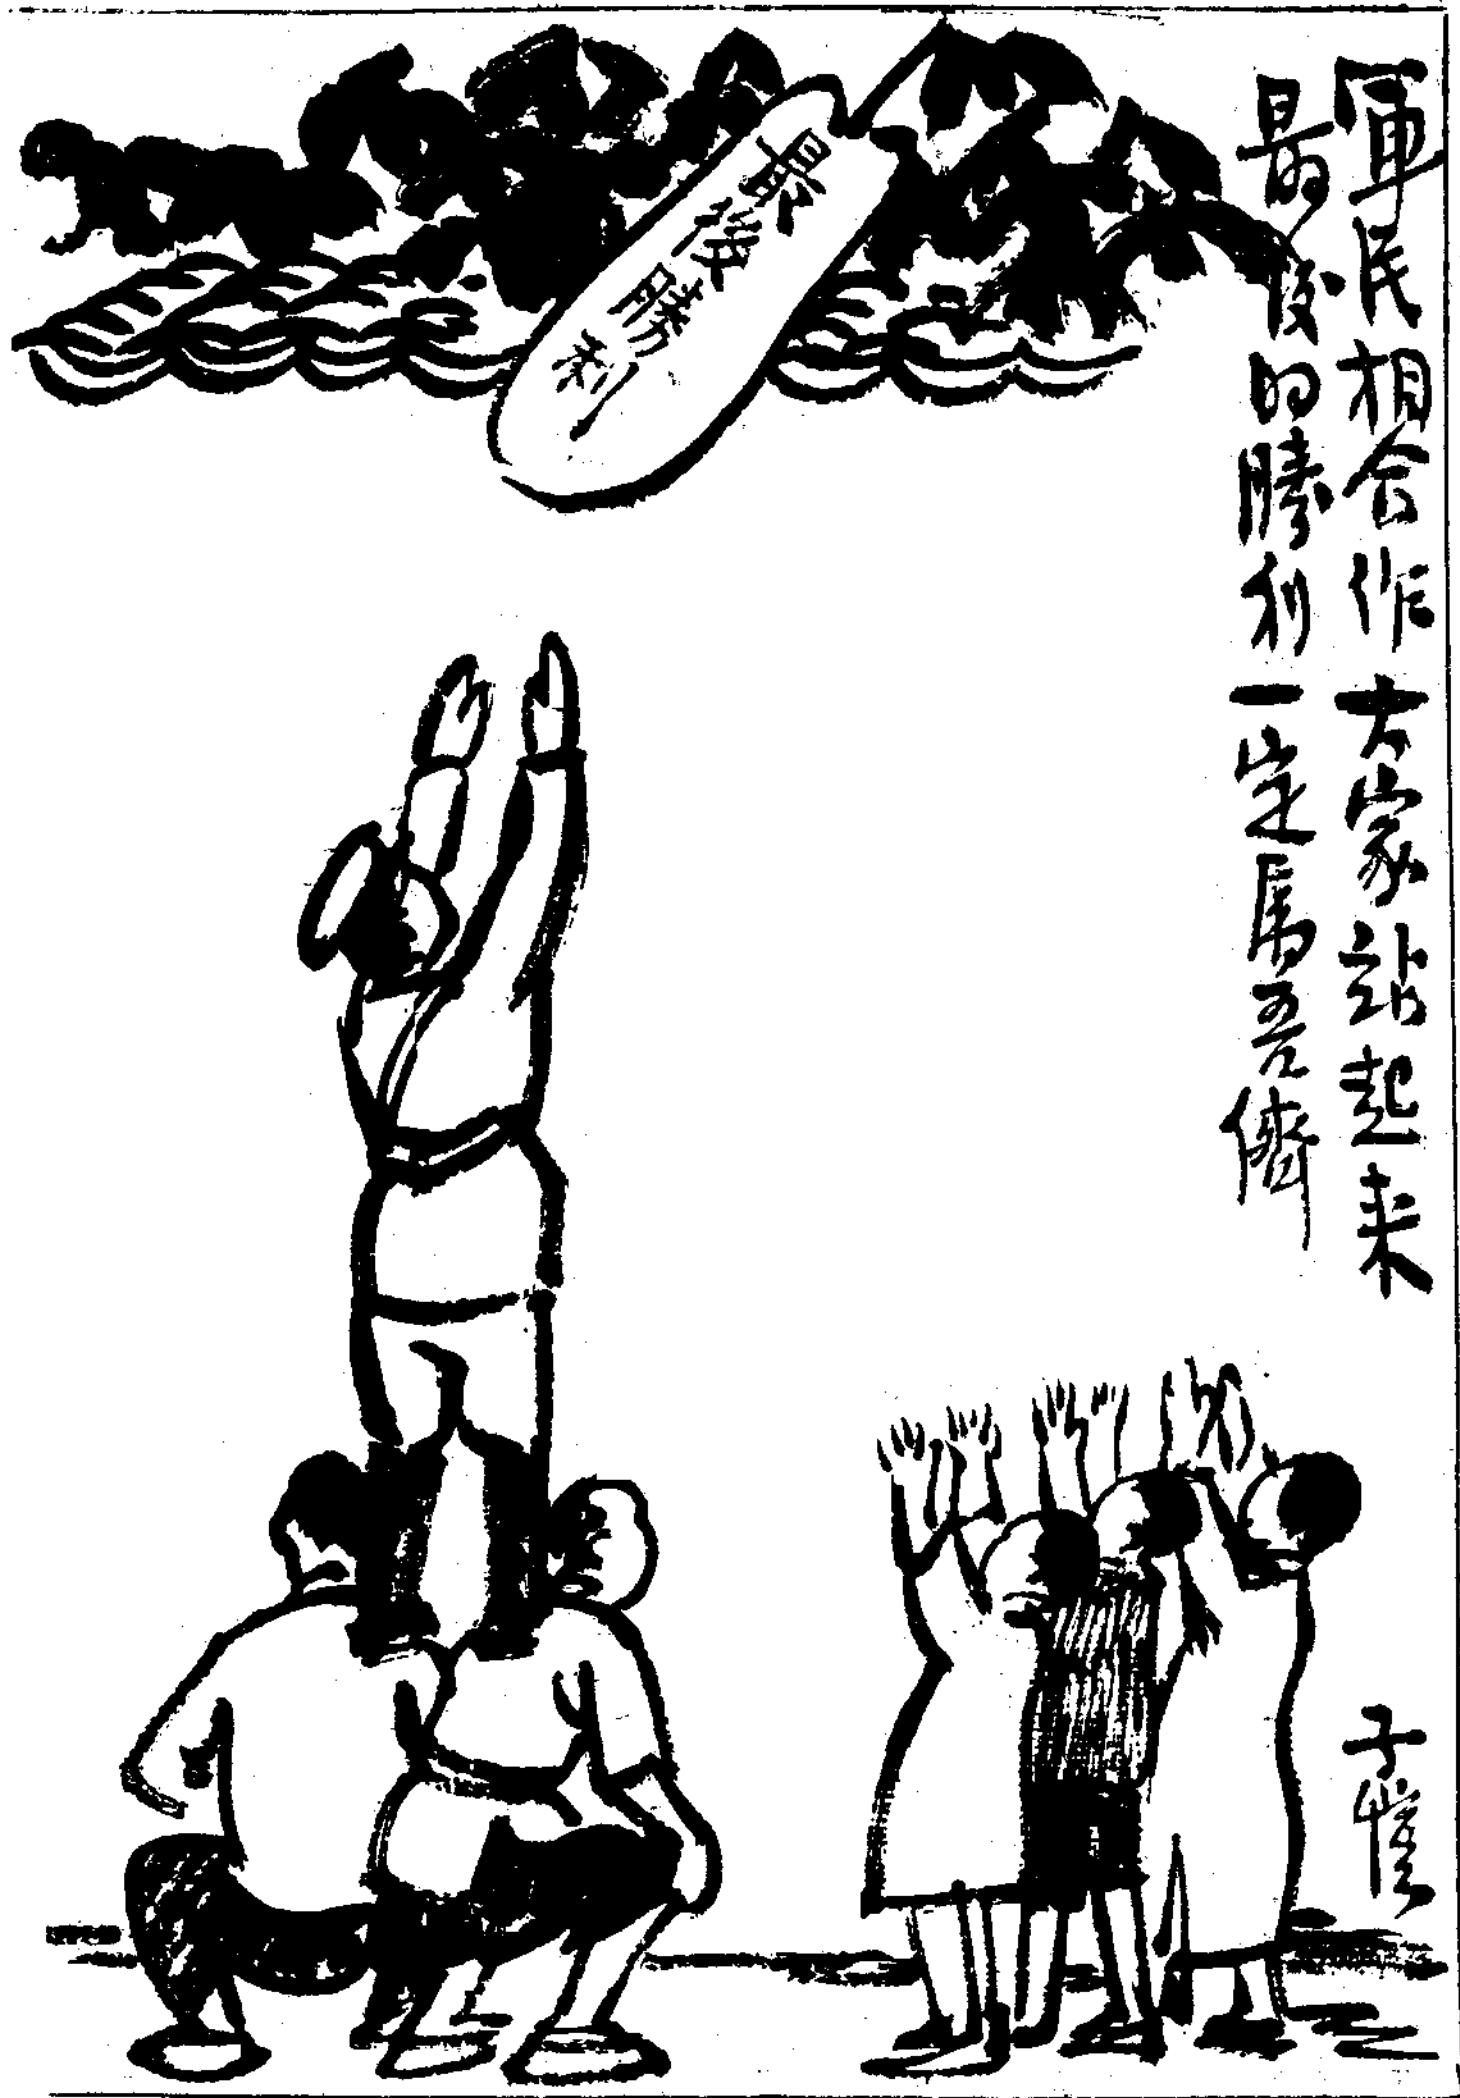 軍民相合作大家站起来
最後的勝利一定属吾儕
最後勝利
子愷